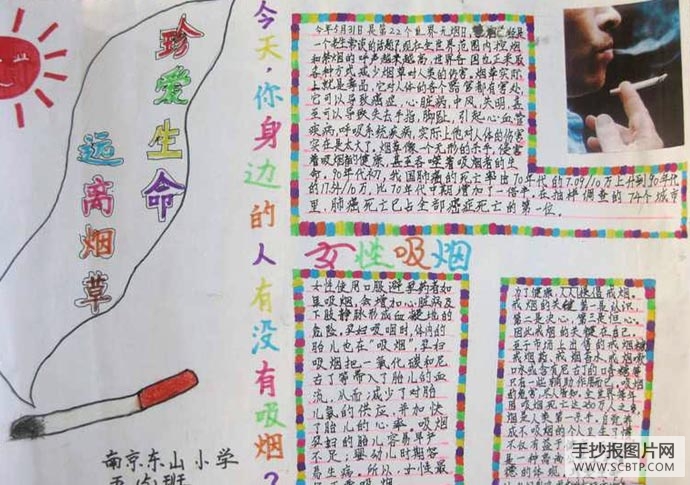 珍爱生命
远离烟草
今天,你身边的人有没有吸烟?
今年5月31日是第22个世界无烟日,
一个老生常谈的话题?现在全世界范围内控烟
和禁烟的呼声越来越高,世界各国也正采取
各种方式减少烟草对人类的伤害。烟草实际
上就是毒品,它对人体的各个器官都有害处,
它可以导致癌症,心脏病,中风,失明,甚
至可以导致失去手指,脚趾,引起心血管
疾病,呼吸系统疾病,实际上他对人体的伤害
实在是太大了。烟草像一个无形的杀手,侵害
着吸烟的健康,甚至吞噬着吸烟者的生
命。90年代初,我国肺癌的死亡率由70年代的7.09/10万上升到90年代
的17.54/10万,比70年代中期增加了一倍半,在抽样调查的74个城市
里,肺癌死亡已占全部癌症死亡的第一位。
女性吸烟
女性使用口服避孕药者如
果吸烟,会增加心脏病及
下肢静脉形成血梗地的
危险。孕妇吸咽时,体内的
胎儿也在“吸烟”,孕妇
吸烟把一氧化碳和尼
古丁等带入了胎儿的血
流,从而减少了对胎
儿氧的供应并加快
了胎儿的心率。吸烟
孕妇的胎儿容易早产
不足;婴幼时期容
易生病。所以,女性最
为了健康,人人提倡戒烟。
戒烟的关键第一是认识,
第二是决心,第三是恒心。
因此戒烟的关键在自己,
至于市场上出售的戒烟糖
戒烟药,戒烟香水,戒烟嗽
口水或含有尼古丁的口香糖
只有一些辅助作用而已。吸烟
因吸烟死亡达250万人之多,
南京东山小学
五(5)班
手抄报图片网
WWW.SCBTP.COM